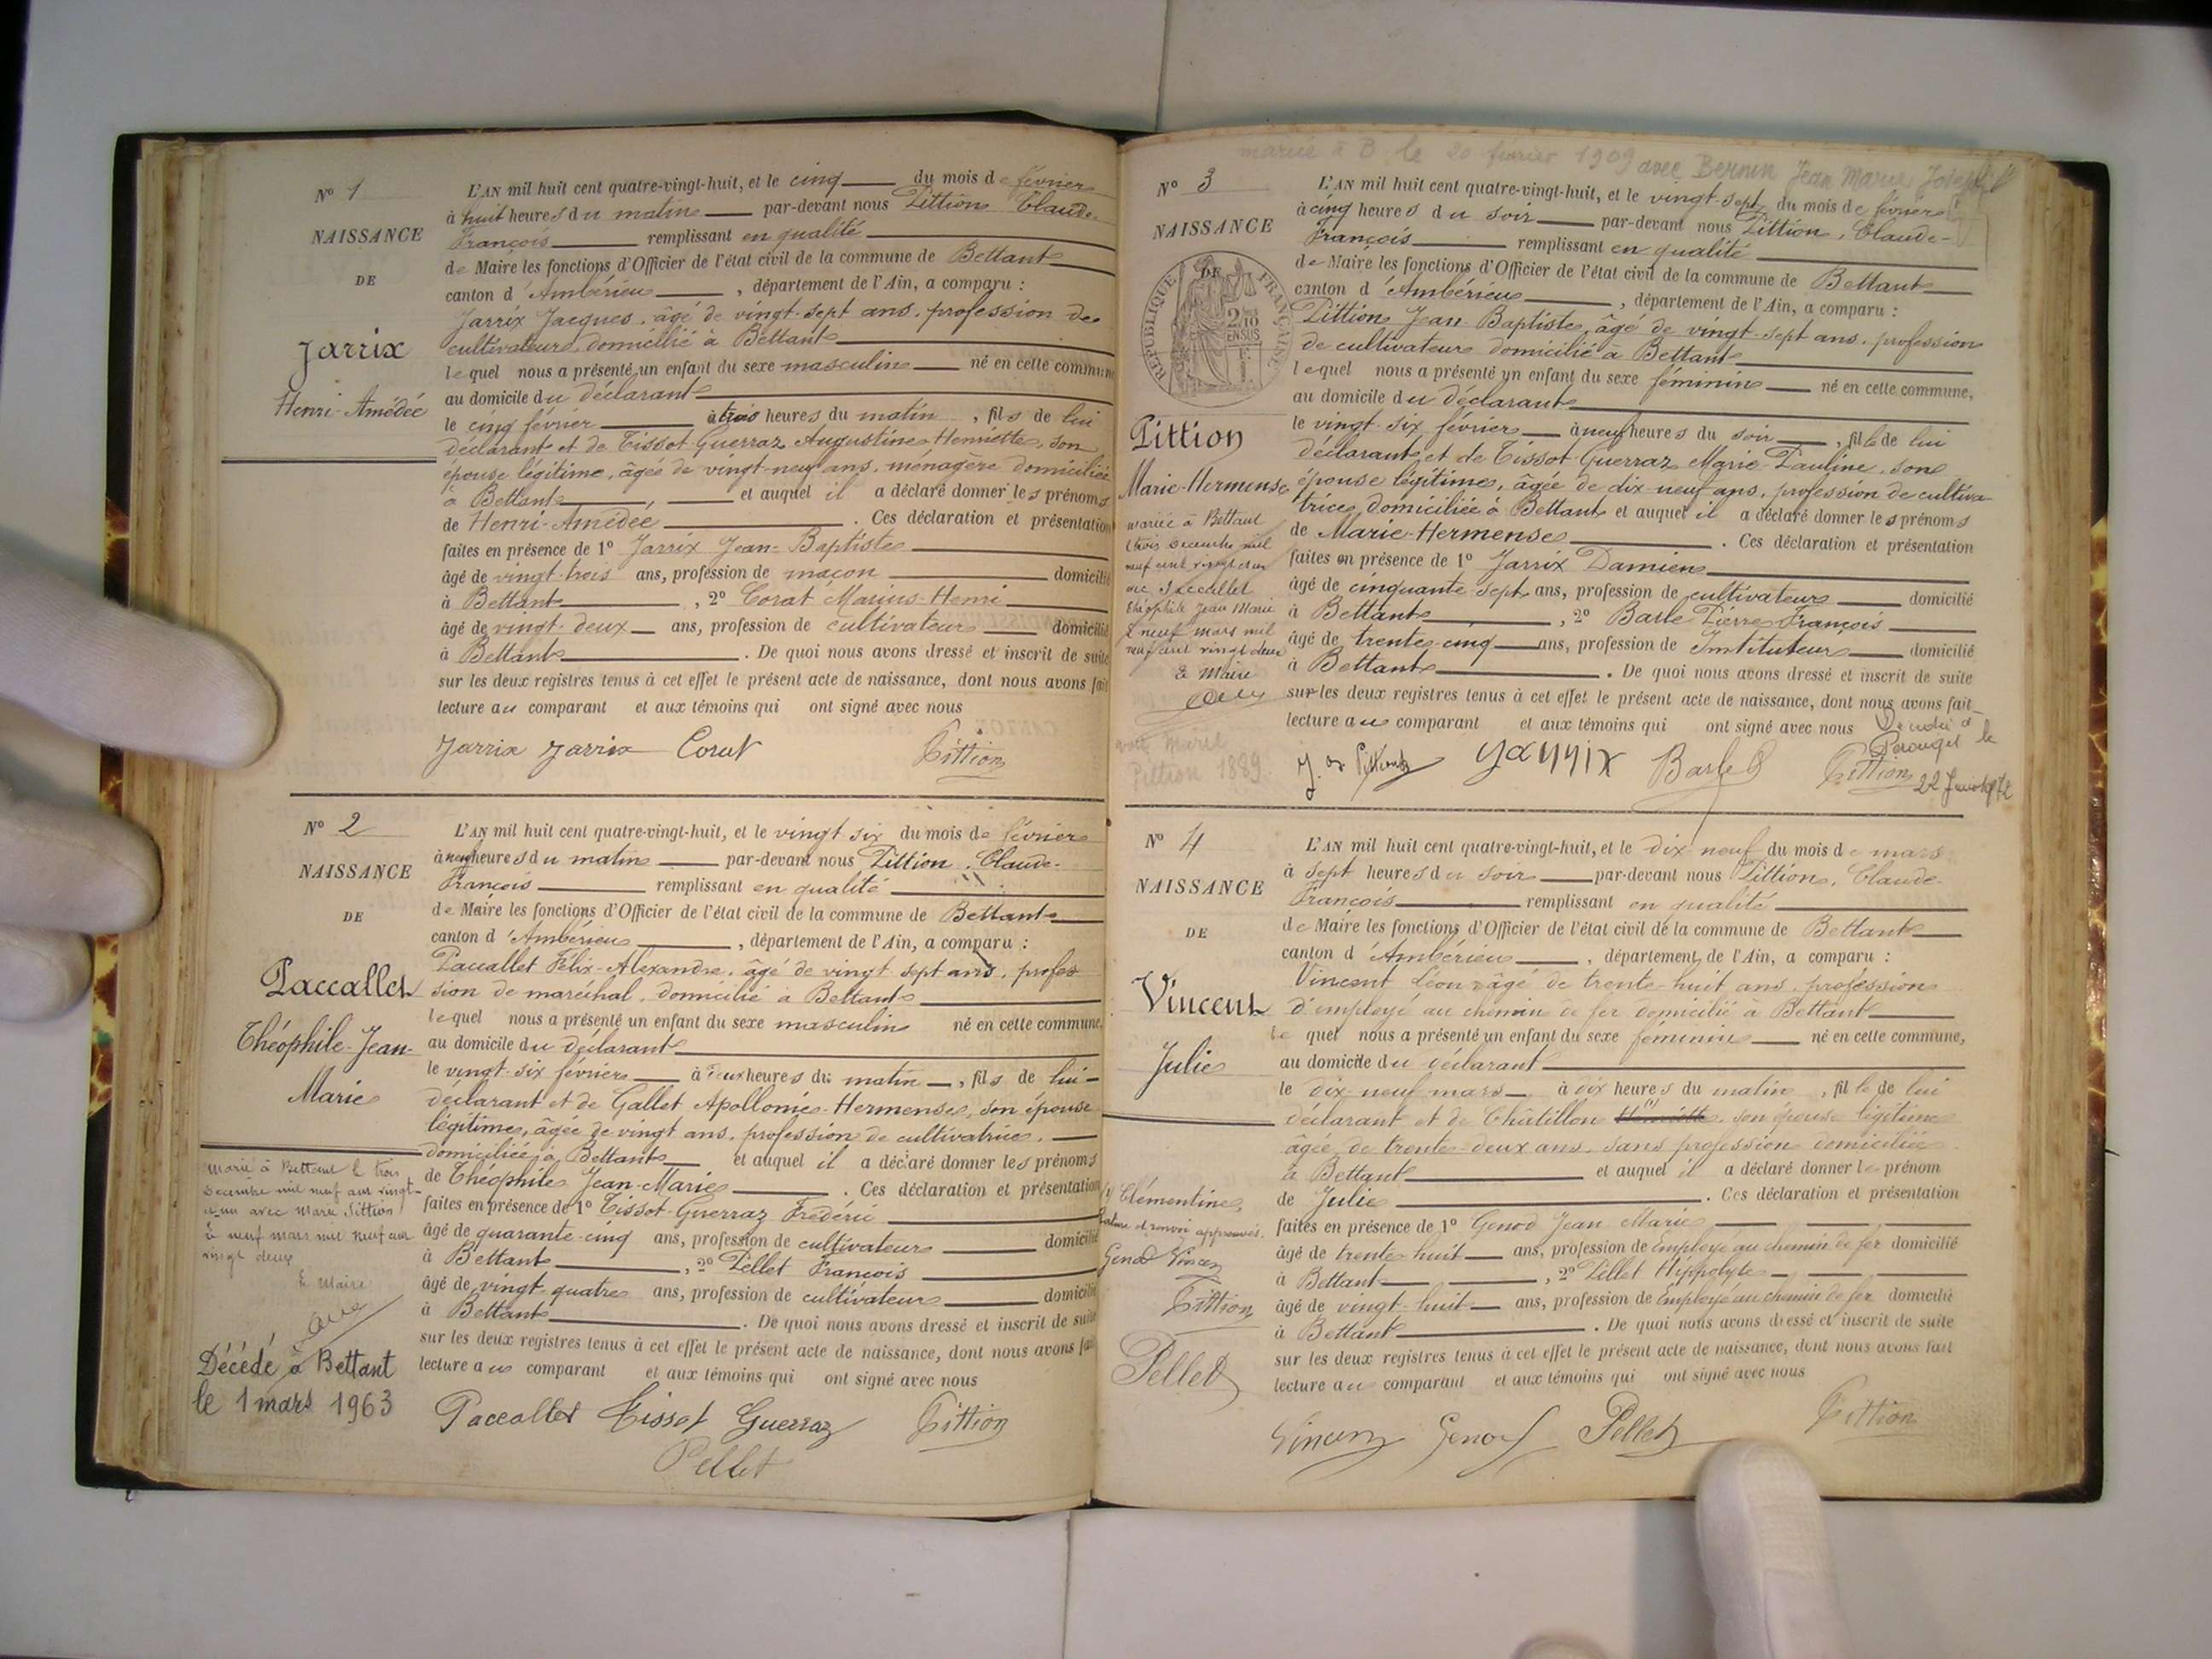 N° 1
NAISSANCE
DE
Jarrix
Henri-Amédée
L'AN mil huit cent quatre-vingt-huit, et le cinq du mois de février
à huit heures du matin par-devant nous Pittion Claude-
François remplissant en qualité
de Maire les fonctions d'Officier de l'état civil de la commune de Bettant
canton d'Ambérieu, département de l'Ain, a comparu :
Jarrix Jacques, âgé de vingt-sept ans, profession de
cultivateur, domicilié à Bettant
lequel nous a présenté un enfant du sexe masculin né en cette commune
au domicile du déclarant
le cinq février à trois heures du matin, fils de lui
déclarant et de Tissot-Guerraz Augustine-Henriette, son
épouse légitime, âgée de vingt-neuf ans, ménagère domiciliée
à Bettant, et auquel il a déclaré donner les prénoms
de Henri-Amédée. Ces déclaration et présentation
faites en présence de 1° Jarrix Jean-Baptiste
âgé de vingt-trois ans, profession de maçon domicilié
à Bettant, 2° Corat Marius-Henri
âgé de vingt-deux ans, profession de cultivateur domicilié
à Bettant. De quoi nous avons dressé et inscrit de suite
sur les deux registres tenus à cet effet le présent acte de naissance, dont nous avons fait
lecture au comparant et aux témoins qui ont signé avec nous
Jarrix Jarrix Corat Pittion
N° 2
NAISSANCE
DE
Paccallet
Théophile-Jean-
Marie
Marié à Bettant le trois
décembre mil neuf cent vingt-
un avec Marie Pittion
le neuf mars mil neuf cent
vingt deux
Le Maire
Décédé à Bettant
le 1 mars 1963
L'AN mil huit cent quatre-vingt-huit, et le vingt six du mois de février
à neuf heures du matin par-devant nous Pittion, Claude-
François remplissant en qualité
de Maire les fonctions d'Officier de l'état civil de la commune de Bettant
canton d'Ambérieu, département de l'Ain, a comparu :
Paccallet Félix-Alexandre, âgé de vingt sept ans, profes
sion de maréchal, domicilié à Bettant
lequel nous a présenté un enfant du sexe masculin né en cette commune,
au domicile du déclarant
le vingt-six février à deux heures du matin, fils de lui-
déclarant et de Gallet Apollonie-Hermense, son épouse
légitime, âgée de vingt ans, profession de cultivatrice,
domiciliée à Bettant et auquel il a déclaré donner les prénoms
de Théophile Jean-Marie. Ces déclaration et présentation
faites en présence de 1° Tissot-Guerraz Frédéric
âgé de quarante-cinq ans, profession de cultivateur domicilié
à Bettant, 2° Pellet François
âgé de vingt-quatre ans, profession de cultivateur domicilié
à Bettant. De quoi nous avons dressé et inscrit de suite
sur les deux registres tenus à cet effet le présent acte de naissance, dont nous avons fait
lecture au comparant et aux témoins qui ont signé avec nous
Paccallet Tissot Guerraz Pittion
Pellet
mariée à B. le 20 fevrier 1909 avec Bernin Jean Marie Joseph
N° 3
NAISSANCE
DE
RÉPUBLIQUE FRANÇAISE
2/10
EN SUS
Pittion
Marie-Hermense
mariée à Bettant
le trois décembre mil
neuf cent vingt et un
avec Paccallet
Théophile Jean Marie
le neuf mars mil
neuf cent vingt deux
Le Maire
Pittion 1889
L'AN mil huit cent quatre-vingt-huit, et le vingt-sept du mois de février
à cinq heures du soir par-devant nous Pittion, Claude-
François remplissant en qualité
de Maire les fonctions d'Officier de l'état civil de la commune de Bettant
canton d'Ambérieu, département de l'Ain, a comparu :
Pittion Jean-Baptiste, âgé de vingt-sept ans, profession
de cultivateur domicilié à Bettant
lequel nous a présenté un enfant du sexe féminin né en cette commune,
au domicile du déclarant
le vingt-six février à neuf heures du soir, fille de lui
déclarant et de Tissot-Guerraz Marie-Pauline, son
épouse légitime, âgée de dix-neuf ans, profession de cultiva
trice, domiciliée à Bettant et auquel il a déclaré donner les prénoms
de Marie-Hermense. Ces déclaration et présentation
faites en présence de 1° Jarrix Damien
âgé de cinquante-sept ans, profession de cultivateur domicilié
à Bettant, 2° Barle Pierre François
âgé de trente-cinq ans, profession de Instituteur domicilié
à Bettant. De quoi nous avons dressé et inscrit de suite
sur les deux registres tenus à cet effet le présent acte de naissance, dont nous avons fait
lecture au comparant et aux témoins qui ont signé avec nous
Décédée à
Perouges le
22
Jarrix Barle Pittion
N° 4
NAISSANCE
DE
Vincent
Julie
(1) Clémentine,
Rature et renvoi approuvés.
Genod Vincent
Pittion
Pellet
L'AN mil huit cent quatre-vingt-huit, et le dix neuf du mois de mars
à sept heures du soir par-devant nous Pittion, Claude-
François remplissant en qualité
de Maire les fonctions d'Officier de l'état civil de la commune de Bettant
canton d'Ambérieu, département de l'Ain, a comparu :
Vincent Léon, âgé de trente-huit ans, profession
d'employé au chemin de fer domicilié à Bettant
lequel nous a présenté un enfant du sexe féminin né en cette commune,
au domicile du déclarant
le dix-neuf mars à dix heures du matin, fille de lui
déclarant et de Châtillon Henriette (1), son épouse légitime
âgée de trente-deux ans, sans profession domiciliée
à Bettant et auquel il a déclaré donner le prénom
de Julie. Ces déclaration et présentation
faites en présence de 1° Genod Jean Marie
âgé de trente-huit ans, profession de Employé au chemin de fer domicilié
à Bettant, 2° Pellet Hippolyte
âgé de vingt-huit ans, profession de Employé au chemin de fer domicilié
à Bettant. De quoi nous avons dressé et inscrit de suite
sur les deux registres tenus à cet effet le présent acte de naissance, dont nous avons fait
lecture au comparant et aux témoins qui ont signé avec nous
Vincent Genod Pellet Pittion